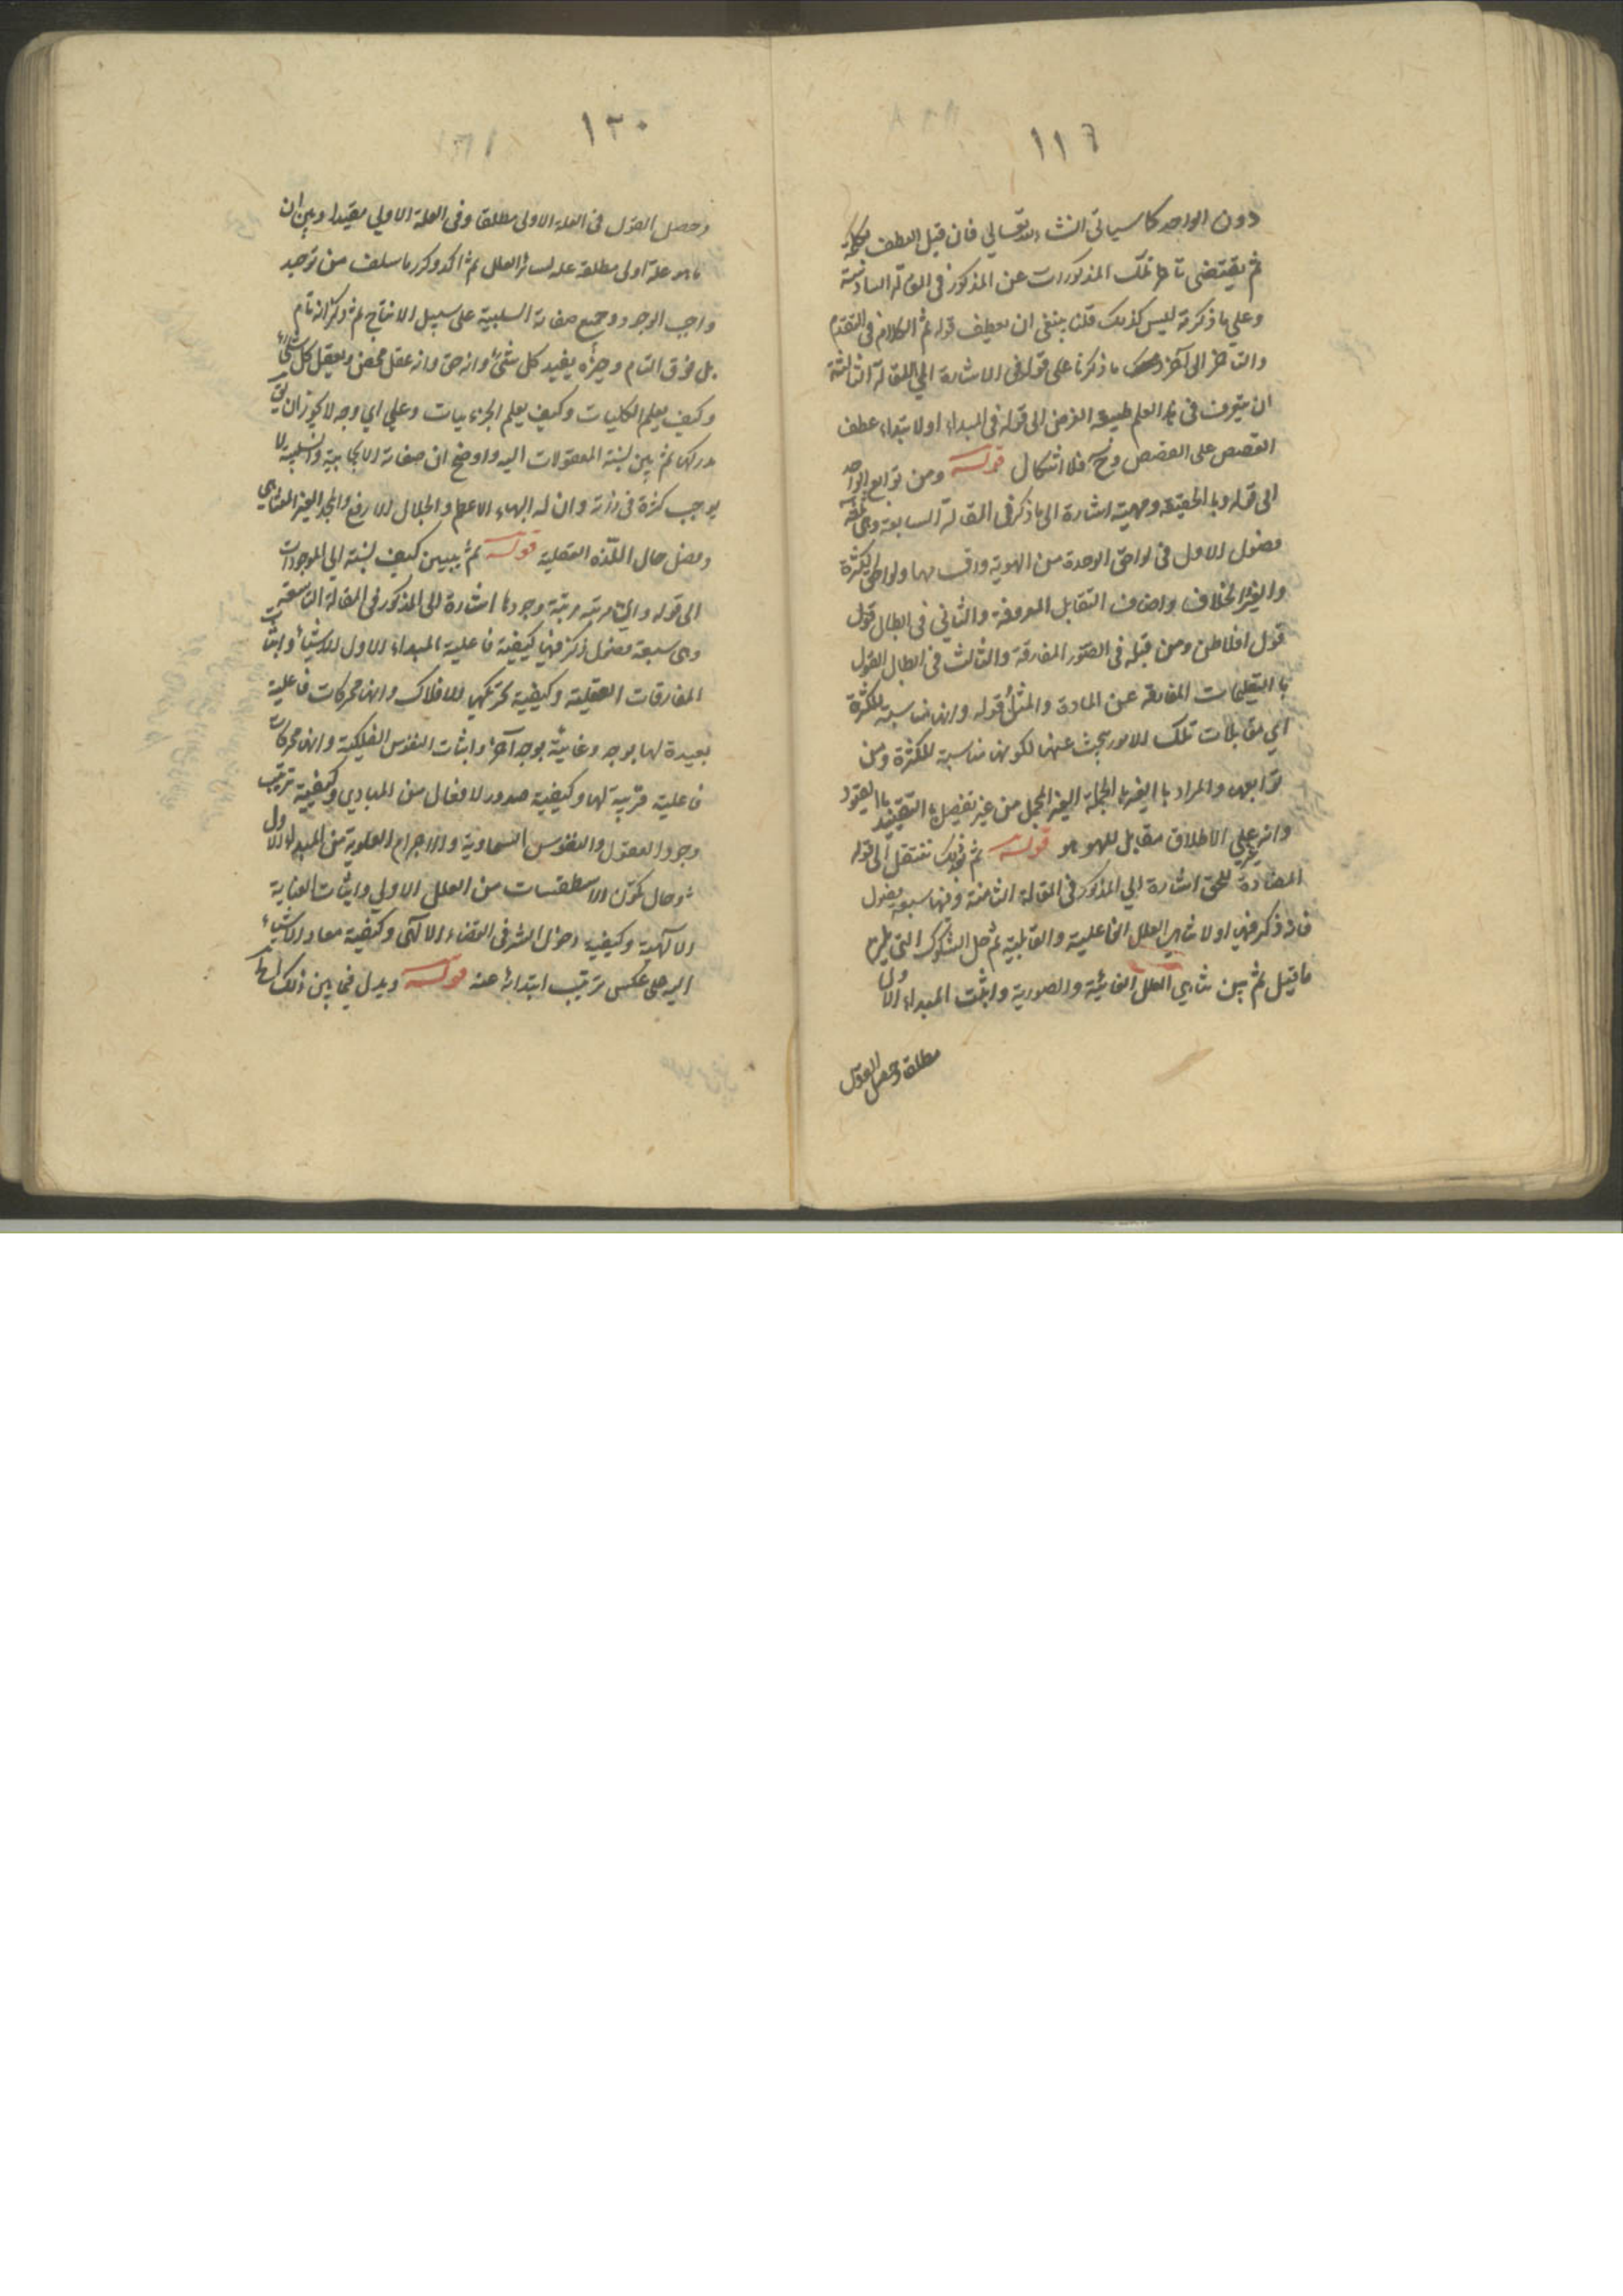 ١١٦
دون الواحد كما سيأتي انشاء الله تعالي فان قيل العطف بكلمة
ثم يقتضى تاخر تلك المذكورات عن المذكور في المقالة السادسة
وعلي ما ذكرته ليس كذلك قلنا ينبغي ان يعطف قوله ثم الكلام في التقدم
والتاخر الى آخر ما ذكرنا على قوله في الاشارة الي المقالة الثالثة
ان يتعرف في هذا العلم طبيعة العرض الى قوله في المبداء او لابتداء عطف
القصص على القصص وح فلا اشكال قوله ومن توابع الواحد
الى قوله وبالحقيقة ومهية اشارة الى ما ذكر في المقالة السابعة وهي ثلثة
فصول الاول في لواحق الوحدة من الهوية واقسامها ولواحق الكثرة
والغيرية والخلاف واصناف التقابل المعروفة والثاني في ابطال قول
قول افلاطن ومن قبله في الصور المفارقة والثالث في ابطال القول
با التعليمات المفارقة عن المادة والمثل قوله وانها مناسبة للكثرة
اي مقابلات تلك الامور يبحث عنها لكونها مناسبة للكثرة ومن
توابعها والمراد با الغير با الجملة الغير المجمل من غير تفصيل با التقييد با القيود
وانه علي الاطلاق مقابل للهو هو قوله ثم بعد ذلك ننتقل الى قوله
المضادة للحق اشارة الي المذكور في المقالة الثامنة وفيها سبعة فصول
فانه ذكر فيها اولا تناهي العلل الفاعلية والقابلية ثم حل الشكوك التي يلزم
ما قيل ثم بين تناهي العلل الغائية والصورية واثبت المبداء الاول
مطلقا وحصل القول
١٢٠
وحصل القول في العلة الاولى مطلقا وفي العلة الاولي مقيدا وبين ان
ما هو علة اولى مطلقة علة لسائر العلل ثم اكد وكرر ما سلف من توحيد
واجب الوجود وجميع صفاته السلبية على سبيل الانتاج ثم ذكر انه تام
بل فوق التام وخيره يفيد كل شئ وانه حق وانه عقل محض ويعقل كل شئ
وكيف يعلم الكليات وكيف يعلم الجزئيات وعلي اي وجه لا يجوز ان يق
يدركها ثم بين نسبة المعقولات اليه واوضح ان صفاته الايجابية والسلبية لا
يوجب كثرة في ذاته وان له البهاء الاعظم والجلال الارفع والمجد الغير المتناهي
وفصل حال اللذة العقلية قوله ثم يبين كيف نسبته الي الموجودات
الى قوله واي مرتبة مرتبة وجودها اشارة الى المذكور في المقالة التاسعة
وهي سبعة فصول ذكر فيها كيفية فاعلية المبداء الاول للاشياء واثبات
المفارقات العقلية وكيفية تحريكها للافلاك وانها محركات فاعلية
بعيدة لها بوجه وغائية بوجه آخر واثبات النفوس الفلكية وانها محركات
فاعلية قريبة لها وكيفية صدور الافعال من المبادي وكيفية ترتيب
وجود العقول والنفوس السماوية والاجرام العلوية من المبداء الاول
وحال تكون الاسطقسات من العلل الاولي واثبات العناية
الآلهية وكيفية دخول الشر في القضاء الآلهي وكيفية معاد الاشياء
اليه علي عكس ترتيب ابتدائه عنه قوله ويدل فيما بين ذلك